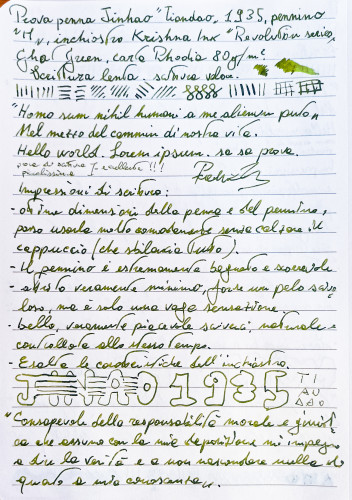 Prova penna Jinhao "Tiandao„ 1935, pennino
"M„, inchiostro Krishna Ink "Revolution series„
Ghat Green, carta Rhodia 80g/m²
Scrittura lenta. scrittura veloce.
"Homo sum nihil humani a me alienum puto„
Nel mezzo del cammin di nostra vita.
Hello world. Lorem ipsum. sa sa prova.
Impressioni di scrittura:
- ottime dimensioni della penna e del pennino,
posso usarla molto comodamente senza calzare il
cappuccio (che sbilancia tutto).
- Il pennino è estremamente bagnato e scorrevole
- attrito veramente minimo, forse un pelo scivo
loso, ma è solo una vaga sensazione.
- bello, veramente piacevole scriverci, naturale e
controllato allo stesso tempo.
- Esalta le caratteristiche dell'inchiostro.
JINHAO 1935 TI
AN
DAO
"Consapevole della responsabilità morale e giuridi
ca che assumo con la mia deposizione mi impegno
a dire la verità e a non nascondere nulla di
quanto a mia conoscenza„